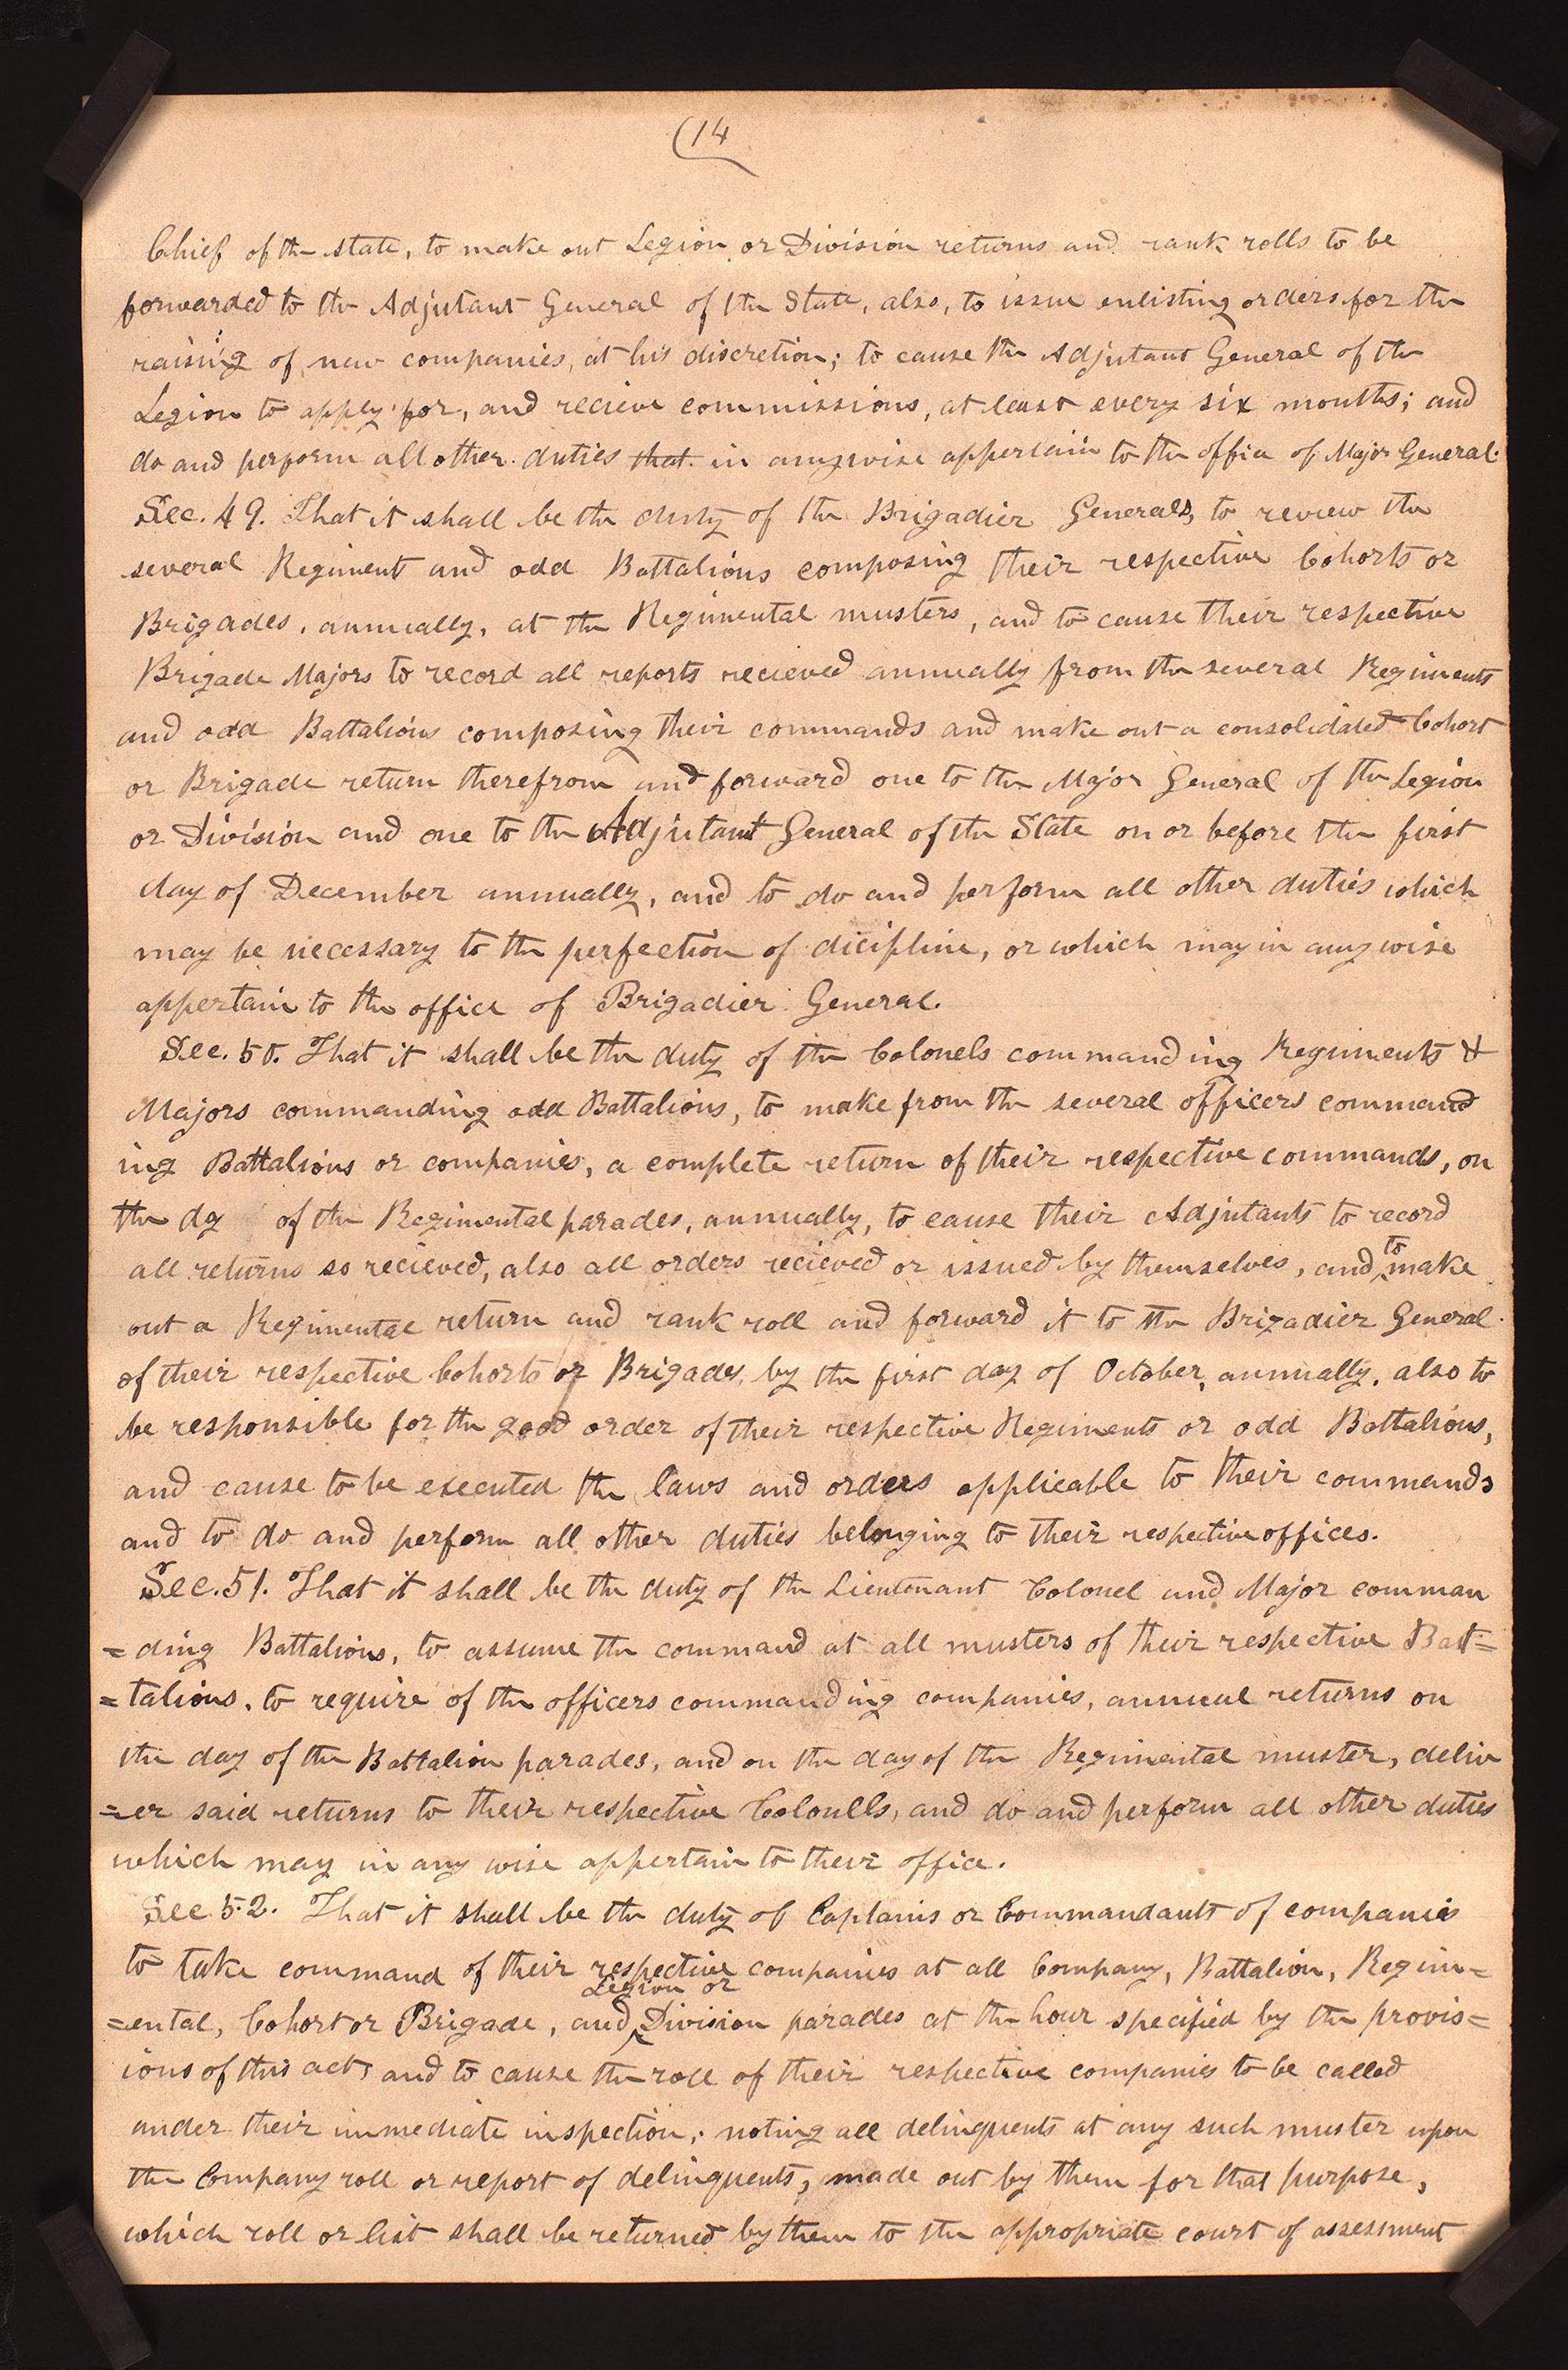 (14
Chief of the state, to make out Legion or Division returns and rank rolls to be
forwarded to the Adjutant General of the State, also, to issue enlisting orders for the
raising of new companies, at his discretion; to cause the Adjutant General of the
Legion to apply for, and recieve commissions, at least every six months; and
do and perform all other duties that in anywise appertain to the office of Major General.
Sec. 49. That it shall be the duty of the Brigadier Generals, to review the
several Regiment and odd Battalions composing their respective Cohorts or
Brigades, annually, at the Regimental musters, and to cause their respective
Brigade Majors to record all reports recieved annually from the several Regiments
and odd Battalions composing their commands and make out a consolidated Cohort
or Brigade return therefrom and forward one to the Major General of the Legion
or Division and one to the Adjutant General of the State on or before the first
day of December annually, and to do and perform all other duties which
may be necessary to the perfection of dicipline, or which may in any wise
appertain to the office of Brigadier General.
Sec. 50. That it shall be the duty of the Colonels commanding Regiments &
Majors commanding odd Battalions, to make from the several officers command
ing Battalions or companies, a complete return of their respective commands, on
the dy of the Regimental parades, annually, to cause their Adjutants to record
all returns so recieved, also all orders recieved or issued by themselves, and to make
out a Regimental return and rank roll and forward it to the Brigadier General
of their respective Cohorts or Brigades, by the first day of October, annually, also to
be responsible for the good order of their respective Regiments or odd Battalions,
and cause to be executed the laws and orders applicable to their commands
and to do and perform all other duties belonging to their respective offices.
Sec. 51. That it shall be the duty of the Lieutenant Colonel and Major comman
=ding Battalions, to assume the command at all musters of their respective Bat=
=talions, to require of the officers commanding companies, annual returns on
the day of the Battalion parades, and on the day of the Regimental muster, deliv
=er said returns to their respective Colonells, and do and perform all other duties
which may in any wise appertain to their office.
Sec. 52. That it shall be the duty of Captains or Commandants of companies
to take command of their respective companies at all Company, Battalion, Regim=
=ental, Cohort or Brigade, and Legion or Division parades at the hour specified by the provis=
ions of this act, and to cause the roll of their respective companies to be called
under their immediate inspection; noting all delinquents at any such muster upon
the Company roll or report of delinquents, made out by them for that purpose,
which roll or list shall be returned by them to the appropriate court of assessment